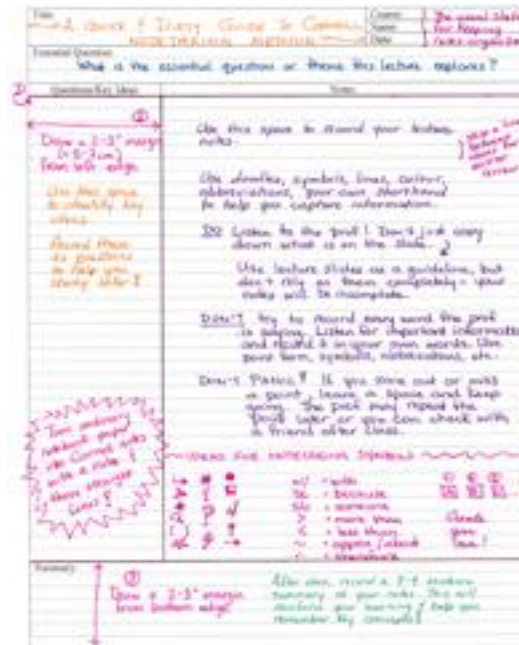 Title
A Quick & Dirty Guide To Cornell
NOTETAKING METHOD
Course
Name
Date
The usual stuff
for keeping
notes organized
Essential Question
What is the essential question or theme this lecture explores?
Questions/Key Ideas
Notes
②
Draw a 2-3" margin
from left edge.
Use this space
to identify key
ideas.
Record these
as questions
to help you
study later!
Use this space to record your lecture
notes.
Skip a line
between
ideas for
Use doodles, symbols, lines, colour,
abbreviations, your own shorthand
to help you capture information.
DO Listen to the prof! Don't just copy
down what is on the slide.
Use lecture slides as a guideline, but
don't rely on them completely - your
notes will be incomplete.
DON'T try to record every word the prof
is saying. Listen for important information
and record it in your own words. Use
point form, symbols, abbreviations, etc.
Don't Panic! If you zone out or miss
a point, leave a space and keep
going. The prof may repeat the
point later or you can check with
a friend after class.
Turn ordinary
notebook paper
into Cornell notes
with a ruler &
three straight
lines!
IDEAS FOR NOTETAKING SYMBOLS
w/ = with
bc = because
= someone
> = more than
< = less than
= therefore
Create
your
own!
Summary
③
Draw a 2-3" margin
from bottom edge
After class, record a sentence
summary of your notes. This will
reinforce your learning & help you
remember key concepts!